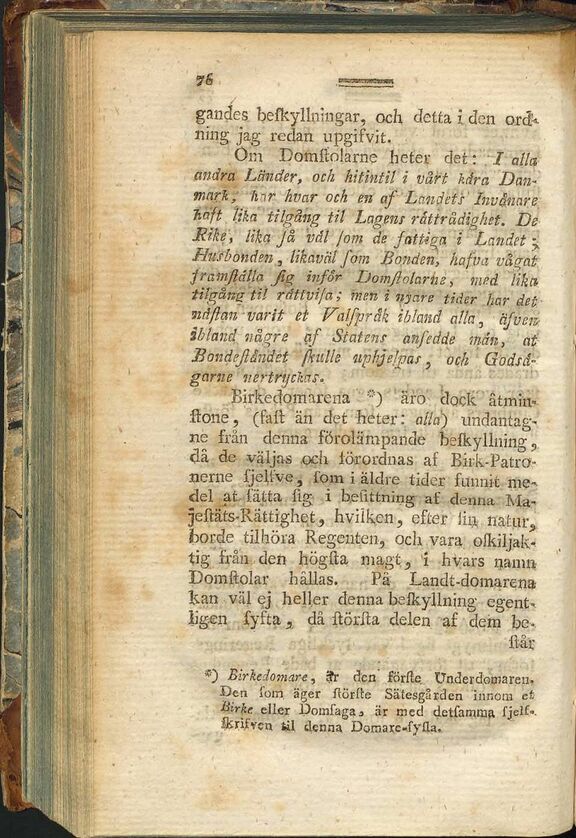 76
gandes beſkyllningar, och detta i den ord-
ning jag redan upgifvit.
Om Domſtolarne heter det: I alla
andra Länder, och hitintil i vårt kära Dan-
mark, har hvar och en af Landets Invånare
haft lika tilgång til Lagens rättrådighet. De
Rike, lika ſå väl ſom de fattiga i Landet;
Husbonden, likaväl ſom Bonden, hafva vågat
framſtälla ſig inför Domſtolarne, med lika
tilgång til rättviſa; men i nyare tider har det
näſtan varit et Valſpråk ibland alla, äfven
ibland någre af Statens anſedde män, at
Bondeſtåndet ſkulle uphjelpas, och Godsä-
garne nertryckas.
Birkedomarena *) äro dock åtmin-
ſtone, (faſt än det heter: alla) undantag-
ne från denna förolämpande beſkyllning,
då de väljas och förordnas af Birk-Patro-
nerne ſjelfve, ſom i äldre tider funnit me-
del at ſätta ſig i beſittning af denna Ma-
jeſtäts-Rättighet, hvilken, efter ſin natur,
borde tilhöra Regenten, och vara oſkiljak-
tig från den högſta magt, i hvars namn
Domſtolar hållas. På Landt-domarena
kan väl ej heller denna beſkyllning egent-
ligen ſyfta, då ſtörſta delen af dem be-
ſtår
*) Birkedomare, är den förſte Underdomaren.
Den ſom äger ſtörſte Sätesgården innom et
Birke eller Domſaga, är med detſamma ſjelf-
ſkrifven til denna Domare-ſyſla.